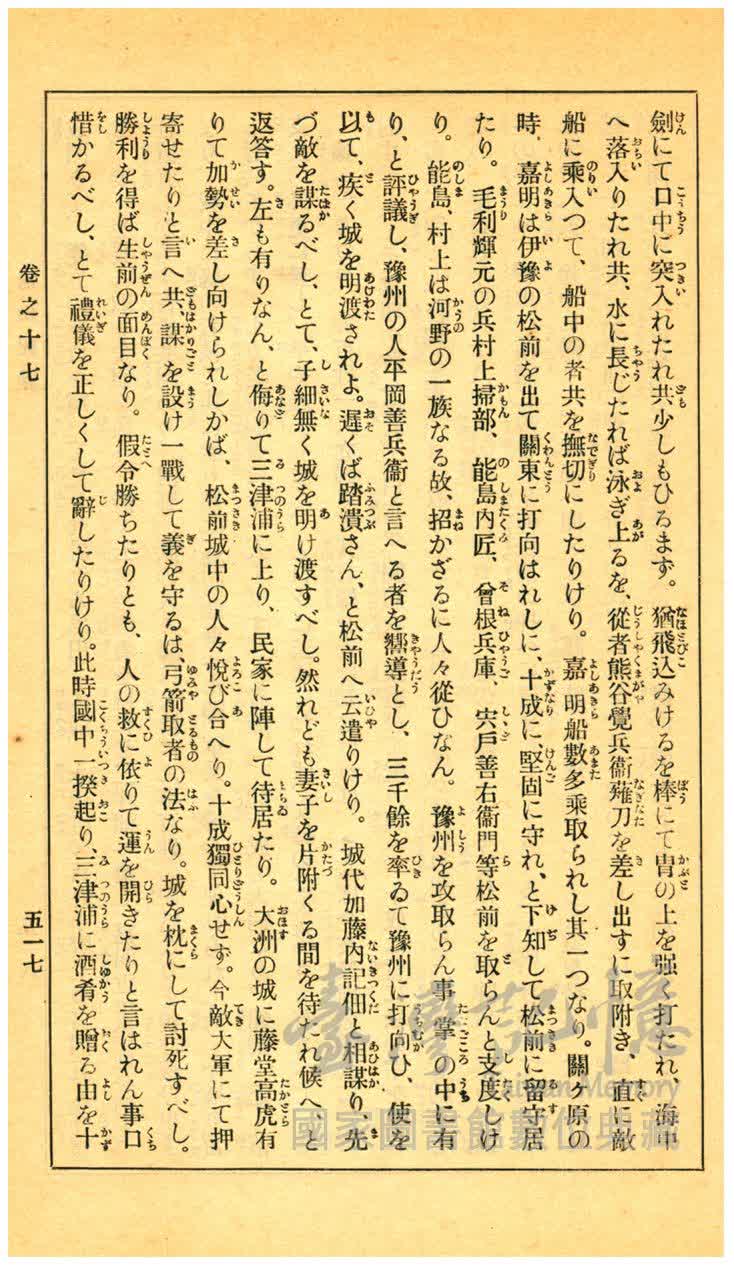 劍にて口中に突入れたれ共少しもひるまず。猶飛込みけるを棒にて冑の上を强く打たれ、海中
へ落入りたれ共、水に長じたれば泳ぎ上るを、從者熊谷覺兵衞薙刀を差し出すに取附き、直に敵
船に乘入つて、船中の者共を撫切にしたりけり。嘉明船數多乘取られし其一つなり。關ヶ原の
時、嘉明は伊豫の松前を出て關東に打向はれしに、十成に、堅固に守れ、と下知して松前に留守居
たり。毛利輝元の兵村上掃部、能島內匠、曾根兵庫、宍戶善右衞門等松前を取らんと支度しけ
り。能島、村上は河野の一族なる故、招かざるに人々從ひなん。豫州を攻取らん事掌の中に有
り、と評議し、豫州の人平岡善兵衞と言へる者を嚮導とし、三千餘を率ゐて豫州に打向ひ、使を
以て、疾く城を明渡されよ。遲くば踏潰さん、と松前へ云遣りけり。城代加藤內記佃と相謀り、先
づ敵を謀るべし、とて、子細無く城を明け渡すべし。然れども妻子を片附くる間を待たれ候へ、と
返答す。左も有りなん、と侮りて三津浦に上り、民家に陣して待居たり。大洲の城に藤堂高虎有
りて加勢を差し向けられしかば、松前城中の人々悅び合へり。十成獨同心せず。今敵大軍にて押
寄せたりと言へ共、謀を設け一戰して義を守るは、弓箭取者の法なり。城を枕にして討死すべし。
勝利を得ば生前の面目なり。假令勝ちたりとも、人の救に依りて運を開きたりと言はれん事口
惜かるべし、とて禮儀を正しくして辭したりけり。此時國中一揆起り、三津浦に酒肴を贈る由を十
卷之十七
五一七
臺灣記憶
Taiwan Memory
國家圖書館數位典藏